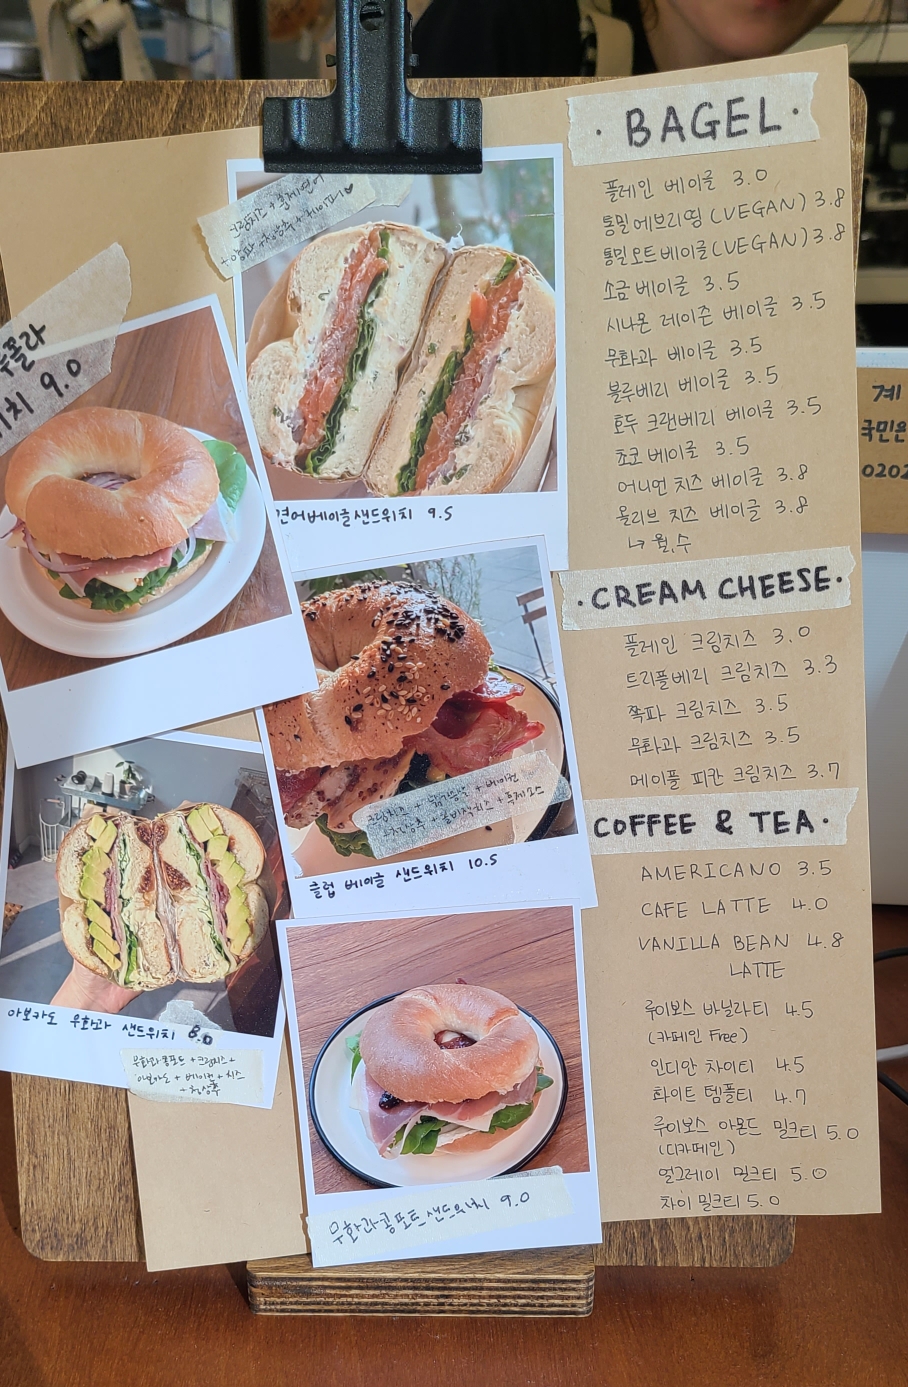 · BAGEL ·
플레인 베이글 3.0
통밀에브리띵(VEGAN) 3.8
통밀오트베이글(VEGAN) 3.8
소금베이글 3.5
시나몬 레이즌 베이글 3.5
무화과 베이글 3.5
블루베리 베이글 3.5
호두 크랜베리 베이글 3.5
쵸코베이글 3.5
어니언 치즈 베이글 3.8
올리브 치즈 베이글 3.8
↳ 월,수
· CREAM CHEESE ·
플레인 크림치즈 3.0
트리플베리 크림치즈 3.3
쪽파 크림치즈 3.5
무화과 크림치즈 3.5
메이플 피칸 크림치즈 3.7
COFFEE & TEA ·
AMERICANO 3.5
CAFE LATTE 4.0
VANILLA BEAN 4.8
LATTE
루이보스 바닐라티 4.5
(카페인 Free)
인디안 차이티 4.5
화이트 템플티 4.7
루이보스 아몬드 밀크티 5.0
(디카페인)
얼그레이 밀크티 5.0
차이 밀크티 5.0
크림치즈 + 훈제연어
+ 양파 + 청상추 + 케이퍼 ♥
연어베이글샌드위치 9.5
폴라
위치 9.0
+ 베이컨
클럽 베이글 샌드위치 10.5
아보카도 무화과 샌드위치 8.0
무화과콩포트 + 크림치즈 +
아보카도 + 베이컨 + 치즈
+ 청상추
무화과콩포트 샌드위치 9.0
계
국민은
0202